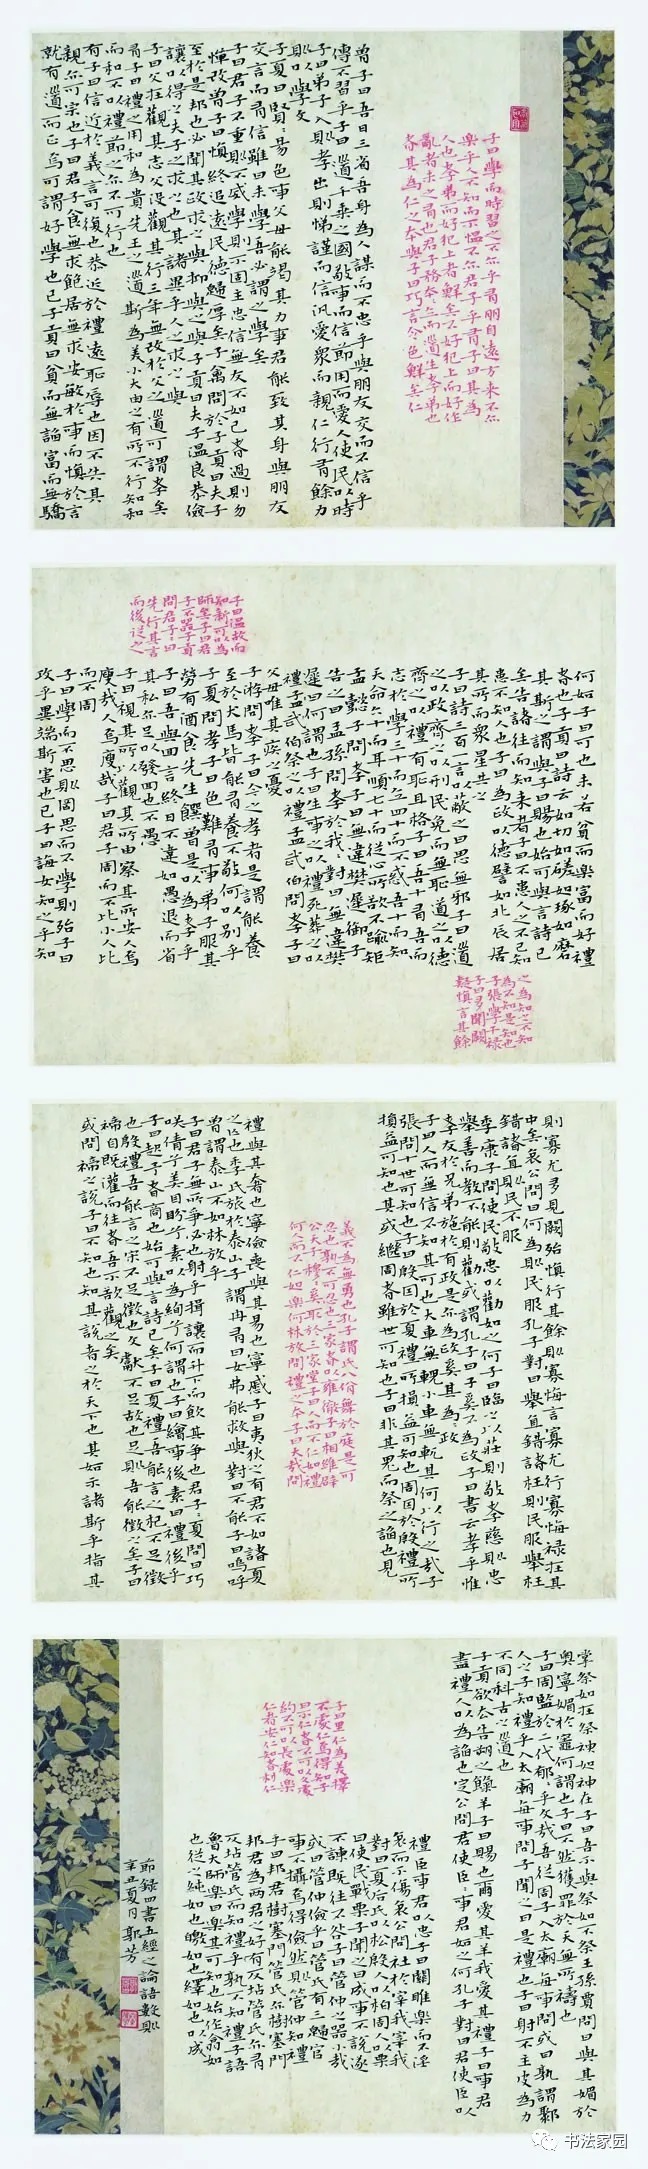 子曰學而時習之不亦乎有朋自遠方來不亦
樂乎人不知而不慍不亦君子乎有子曰其為
人也孝弟而好犯上者鮮矣不好犯上而好作
亂者未之有也君子務本本立而道生孝弟也
者其為仁之本與子曰巧言令色鮮矣仁
曾子曰吾日三省吾身為人謀而不忠乎與朋友交而不信乎
傳不習乎子曰道千乘之國敬事而信節用而愛人使民以時
子曰弟子入則孝出則悌謹而信汎愛眾而親仁行有餘力
則以學文
子夏曰賢賢易色事父母能竭其力事君能致其身與朋友
交言而有信雖曰未學吾必謂之學矣
子曰君子不重則不威學則不固主忠信無友不如己者過則勿
憚改曾子曰慎終追遠民德歸厚矣子禽問於子貢曰夫子
至於是邦也必聞其政求之與抑與之與子貢曰夫子溫良恭儉
讓以得之夫子之求之也其諸異乎人之求之與
子曰父在觀其志父沒觀其行三年無改於父之道可謂孝矣
有子曰禮之用和為貴先王之道斯為美小大由之有所不行知和
而和不以禮節之亦不可行也
有子曰信近於義言可復也恭近於禮遠恥辱也因不失其
親亦可宗也子曰君子食無求飽居無求安敏於事而慎於言
就有道而正焉可謂好學也已子貢曰貧而無諂富而無驕
何如子曰可也未若貧而樂富而好禮
者也子貢曰詩云如切如磋如琢如磨
其斯之謂與子曰賜也始可與言詩已
矣告諸往而知來者子曰不患人之不己知
患不知人也子曰為政以德譬如北辰居
其所而眾星共之
子曰詩三百一言以蔽之曰思無邪子曰道
之以政齊之以刑民免而無恥道之以德
齊之以禮有恥且格子曰吾十有五而
志於學三十而立四十而不惑五十而知
天命六十而耳順七十而從心所欲不踰矩
孟懿子問孝子曰無違樊遲御子
告之曰孟孫問孝於我我對曰無違樊
遲曰何謂也子曰生事之以禮死葬之以
禮孟武伯祭之以禮孟武伯問孝子曰
父母唯其疾之憂
子游問孝子曰今之孝者是謂能養
至於犬馬皆能有養不敬何以別乎
子夏問孝子曰色難有事弟子服其
勞有酒食先生饌曾是以為孝乎
子曰吾與回言終日不違如愚退而省
其私亦足以發回也不愚
子曰視其所以觀其所由察其所安人焉
廋哉人焉廋哉子曰君子周而不比小人比
而不周
子曰學而不思則罔思而不學則殆子曰
攻乎異端斯害也已子曰誨女知之乎知
子曰溫故而
知新可以為
師矣子曰君
子不器子貢
問君子子曰
先行其言
而後從之
之為知之不知
為不知是知也
子張學干祿
子曰多聞闕
疑慎言其餘
則寡尤多見闕殆慎行其餘則寡悔言寡尤行寡悔祿在其
中矣哀公問曰何為則民服孔子對曰舉直錯諸枉則民服舉枉
錯諸直則民不服
季康子問使民敬忠以勸如之何子曰臨之以莊則敬孝慈則忠
舉善而教不能則勸或謂孔子曰子奚不為政子曰書云孝乎惟
孝友於兄弟施於有政是亦為政奚其為為政
子曰人而無信不知其可也大車無輗小車無軏其何以行之哉子
張問十世可知也子曰殷因於夏禮所損益可知也周因於殷禮所
損益可知也其或繼周者雖世可知也子曰非其鬼而祭之諂也見
義不為無勇也孔子謂氏八佾舞於庭是可
忍也孰不可忍也三家者以雍徹子曰相維辟
公天子穆穆奚取於三家堂子曰人而不仁如禮
何人而不仁如樂何林放問禮之本子曰大哉問
禮與其奢也寧儉喪與其易也寧戚子曰夷狄之有君不如諸夏
之亡也季氏旅於泰山子謂冉有曰女弗能救與對曰不能子曰嗚呼
曾謂泰山不如林放乎
子曰君子無所爭必也射乎揖讓而升下而飲其爭也君子子夏問曰巧
笑倩兮美目盼兮素以為絢兮何謂也子曰繪事後素曰禮後乎
子曰起予者商也始可與言詩已矣子曰夏禮吾能言之杞不足徵
也殷禮吾能言之宋不足徵也文獻不足故也足則吾能徵之矣子曰
禘自既灌而往者吾不欲觀之矣
或問禘之說子曰不知也知其說者之於天下也其如示諸斯乎指其
掌祭如在祭神如神在子曰吾不與祭如不祭王孫賈問曰與其媚於
奧寧媚於竈何謂也子曰不然獲罪於天無所禱也
子曰周監於二代郁郁乎文哉吾從周子入太廟每事問或曰孰謂鄹
人之子知禮乎入太廟每事問子聞之曰是禮也子曰射不主皮為力
不同科古之道也
子貢欲去告朔之餼羊子曰賜也爾愛其羊我愛其禮子曰事君
盡禮人以為諂也定公問君使臣臣事君如之何孔子對曰君使臣以
禮臣事君以忠子曰關雎樂而不淫
哀而不傷哀公問社於宰我宰我
對曰夏后氏以松殷人以柏周人以栗
曰使民戰栗子聞之曰成事不說遂
事不諫既往不咎子曰管仲之器小哉
或曰管仲儉乎曰管氏有三歸官
事不攝焉得儉然則管仲知禮
乎曰邦君樹塞門管氏亦樹塞門
邦君為兩君之好有反坫管氏亦有
反坫管氏而知禮孰不知禮子語
魯大師樂曰樂其可知也始作翕如
也從之純如也皦如也繹如也以成
子曰里仁為美擇
不處仁焉得知子
曰不仁者不可以久處
約不可以長處樂
仁者安仁知者利仁
節錄四書五經之論語數則
辛丑夏月郭芳
书法家园